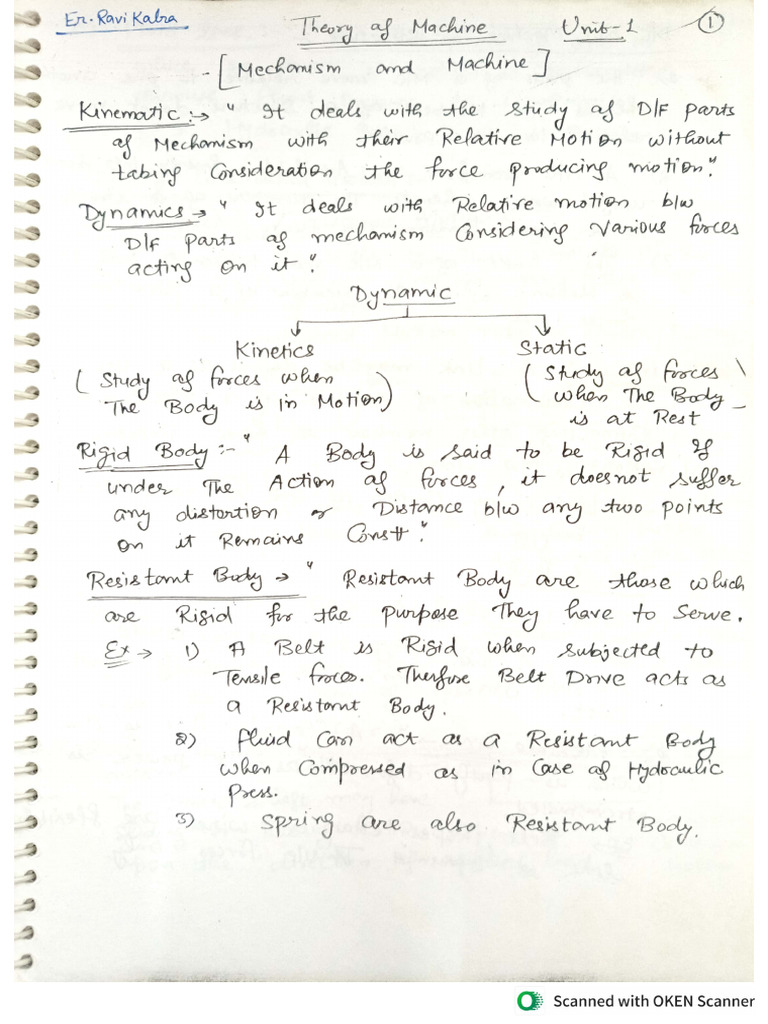 Er. Ravi Kalra Theory of Machine Unit-1 1
- [Mechanism and Machine]
Kinematic :→ " It deals with the study of D/F parts
of Mechanism with their Relative Motion without
taking Consideration the force producing motion."
Dynamics → " It deals with Relative motion b/w
D/F parts of mechanism Considering various forces
acting on it."
Dynamic
Kinetics Static
(Study of forces when (Study of forces
The Body is in Motion) when The Body
is at Rest
Rigid Body :- " A Body is said to be Rigid If
under The Action of forces, it doesnot suffer
any distortion or Distance b/w any two points
on it Remains Constt."
Resistant Body → " Resistant Body are those which
are Rigid for the purpose They have to Serve.
Ex → 1) A Belt is Rigid when subjected to
Tensile forces. Therfore Belt Drive acts as
a Resistant Body.
2) fluid Can act as a Resistant Body
when Compressed as in Case of Hydraulic
Press.
3) Spring are also Resistant Body.
Scanned with OKEN Scanner